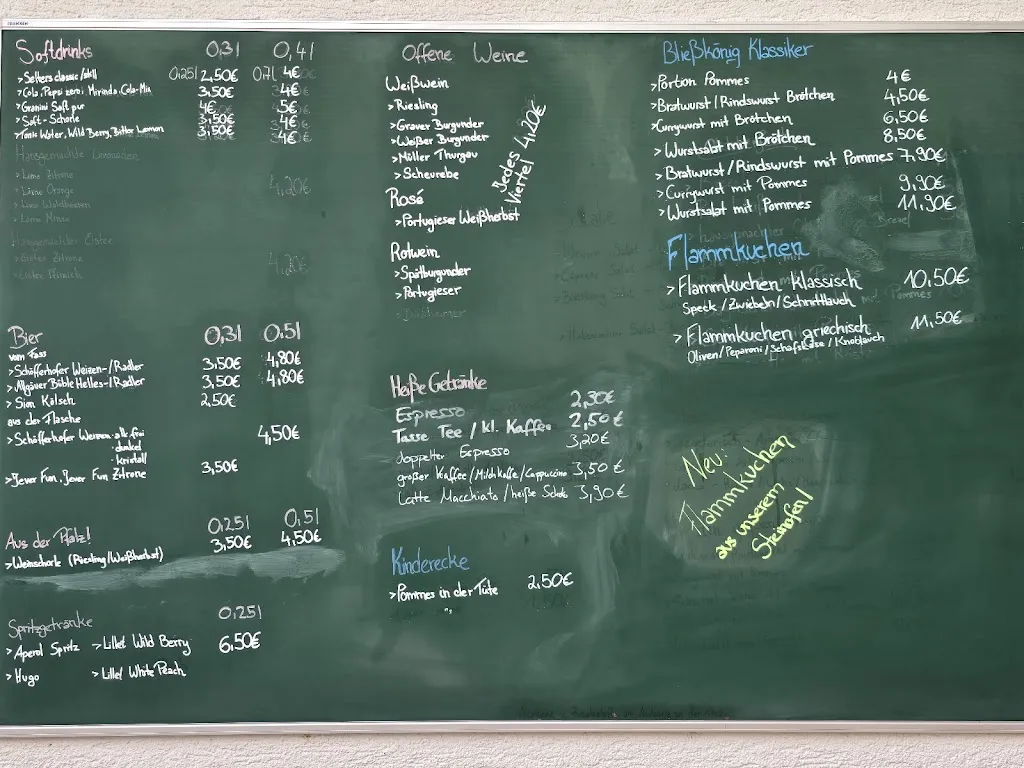 Softdrinks 0,3l 0,4l
>Selters classic/still 0,25l 2,50€ 0,7l 4€
>Cola, Pepsi zero, Mirinda, Cola-Mix 3,50€ 4€
>Granini Saft pur 4€ 5€
>Saft-Schorle 3,50€ 4€
>Tonic Water, Wild Berry, Bitter Lemon 3,50€ 4€
Hausgemachte Limonaden
>Limo Zitrone
>Limo Orange 4,20€
>Limo Waldbeeren
>Limo Minze
Hausgemachter Eistee
>Eistee Zitrone 4,20€
>Eistee Pfirsich
Bier 0,3l 0,5l
vom Fass
>Schöfferhofer Weizen-/Radler 3,50€ 4,80€
>Allgäuer Büble Helles-/Radler 3,50€ 4,80€
>Sion Kölsch 2,50€
aus der Flasche
>Schöfferhofer Weizen·alk.frei 4,50€
·dunkel
·kristall
>Jever Fun, Jever Fun Zitrone 3,50€
Aus der Pfalz! 0,25l 0,5l
>Weinschorle (Riesling/Weißherbst) 3,50€ 4,50€
Spritzgetränke 0,25l
>Aperol Spritz >Lillet Wild Berry 6,50€
>Hugo >Lillet White Peach
Offene Weine
Weißwein
>Riesling
>Grauer Burgunder
>Weißer Burgunder
>Müller Thurgau
>Scheurebe
Jedes Viertel 4,20€
Rosé
>Portugieser Weißherbst
Rotwein
>Spätburgunder
>Portugieser
Heiße Getränke
Espresso 2,30€
Tasse Tee / kl. Kaffee 2,50€
doppelter Espresso 3,20€
großer Kaffee/Milchkaffe/Cappuccino 3,50€
Latte Macchiato/heiße Schoko 3,90€
Kinderecke
>Pommes in der Tüte 2,50€
Bließkönig Klassiker
>Portion Pommes 4€
>Bratwurst/Rindswurst Brötchen 4,50€
>Currywurst mit Brötchen 6,50€
>Wurstsalat mit Brötchen 8,50€
>Bratwurst/Rindswurst mit Pommes 7,90€
>Currywurst mit Pommes 9,90€
>Wurstsalat mit Pommes 11,90€
Flammkuchen
>Flammkuchen klassisch 10,50€
Speck/Zwiebeln/Schnittlauch
>Flammkuchen griechisch 11,50€
Oliven/Peperoni/Schafskäse/Knoblauch
Neu:
Flammkuchen
aus unserem
Steinofen!